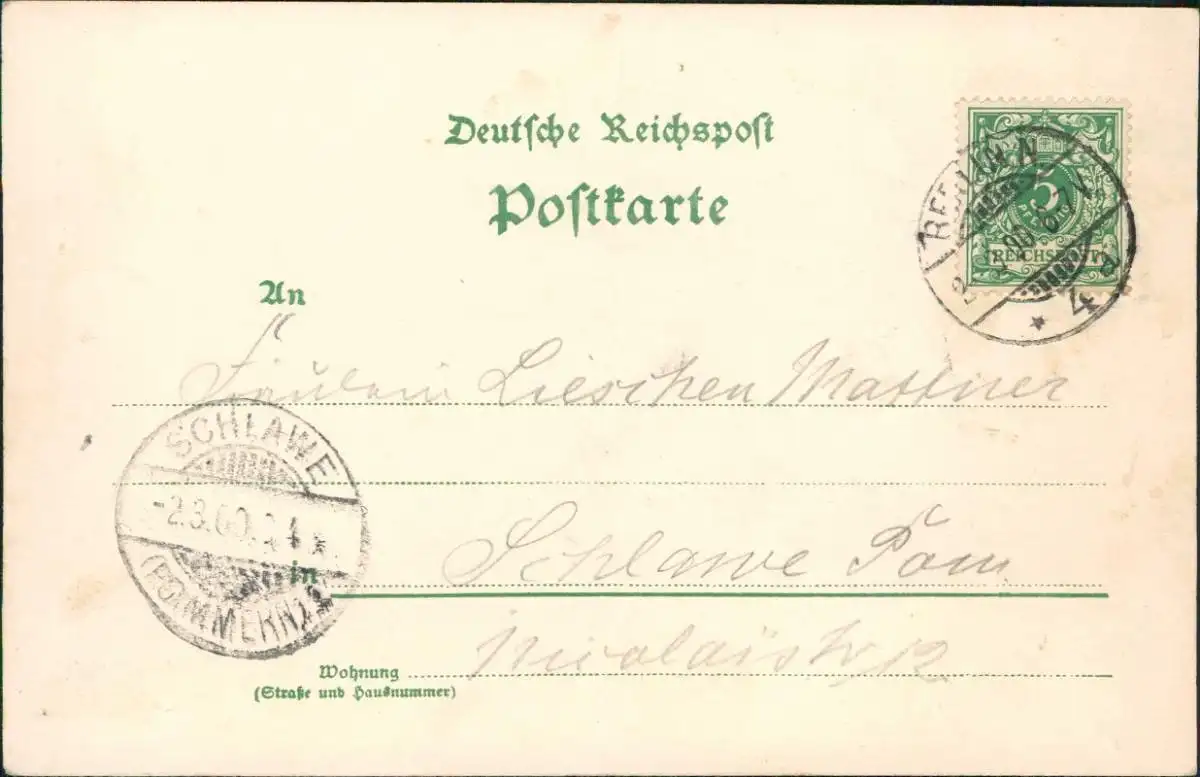 Deutsche Reichspost
Postkarte
5
PFENNIG
REICHSPOST
BERLIN N
2.3.00.6-7V.
4 a
An
Fräulein Lieschen
SCHLAWE
-2.3.00.
(POMMERN)
in
Schlawe Pom
Wohnung
(Straße und Hausnummer)